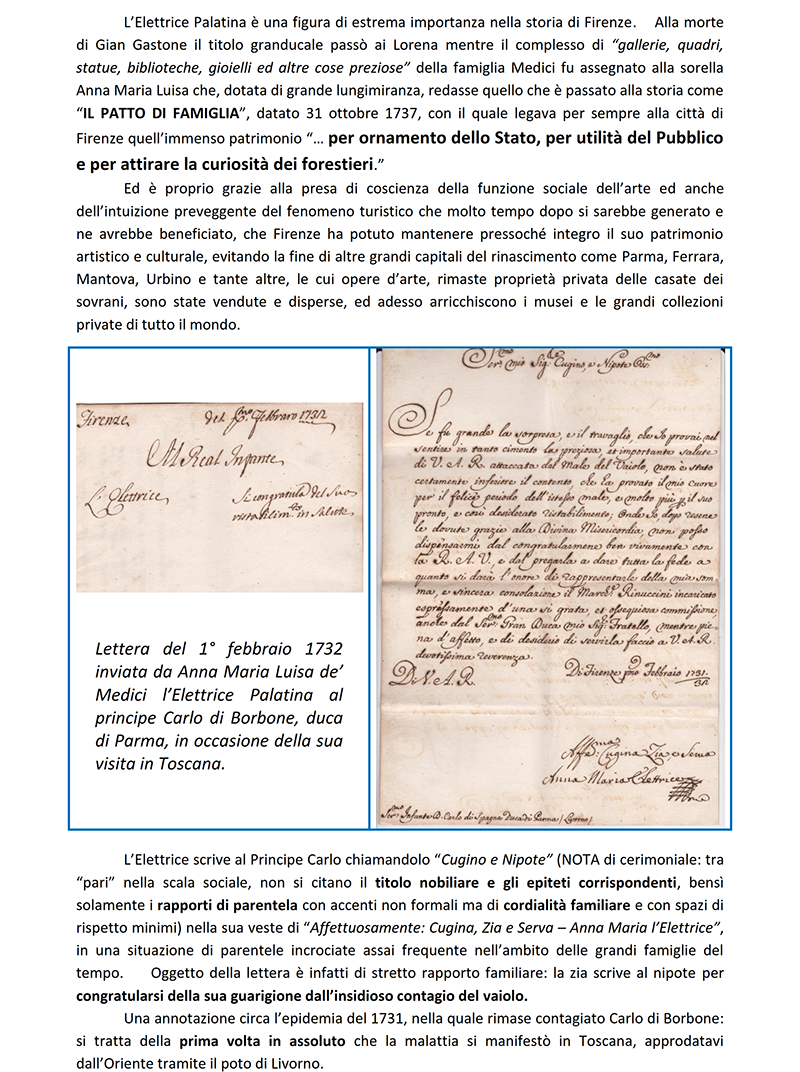 L’Elettrice Palatina è una figura di estrema importanza nella storia di Firenze. Alla morte
di Gian Gastone il titolo granducale passò ai Lorena mentre il complesso di “gallerie, quadri,
statue, biblioteche, gioielli ed altre cose preziose” della famiglia Medici fu assegnato alla sorella
Anna Maria Luisa che, dotata di grande lungimiranza, redasse quello che è passato alla storia come
“IL PATTO DI FAMIGLIA”, datato 31 ottobre 1737, con il quale legava per sempre alla città di
Firenze quell’immenso patrimonio “… per ornamento dello Stato, per utilità del Pubblico
e per attirare la curiosità dei forestieri.”
Ed è proprio grazie alla presa di coscienza della funzione sociale dell’arte ed anche
dell’intuizione preveggente del fenomeno turistico che molto tempo dopo si sarebbe generato e
ne avrebbe beneficiato, che Firenze ha potuto mantenere pressoché integro il suo patrimonio
artistico e culturale, evitando la fine di altre grandi capitali del rinascimento come Parma, Ferrara,
Mantova, Urbino e tante altre, le cui opere d’arte, rimaste proprietà privata delle casate dei
sovrani, sono state vendute e disperse, ed adesso arricchiscono i musei e le grandi collezioni
private di tutto il mondo.
Firenze del Pmo Febbraro 1731/2
Al Real Infante
L'Elettrice
Si congratula del Suo
ristabilimto in Salute
Lettera del 1° febbraio 1732
inviata da Anna Maria Luisa de’
Medici l’Elettrice Palatina al
principe Carlo di Borbone, duca
di Parma, in occasione della sua
visita in Toscana.
Sermo mio Sigre Cugino, e Nipote
Se fu grande la sorpresa, e il travaglio, che Io provai nel
sentire in tanto cimento la preziosa, et importante salute
di V. A. R. attaccata dal Male del Vaiolo, non è stato
certamente inferiore il contento, che ha provato il mio cuore
per il felice periodo dell'istesso male, e molto più p il suo
pronto, e così desiderato ristabilimento; Onde Io, dopo
le dovute grazie alla Divina Misericordia, non posso
dispensarmi dal congratularmene ben vivamente con
la R. A. V., e dal pregarla a dare tutta la fede a
quanto si darà l'onore di rappresentarle della mia som
ma, e sincera consolazione il Marche Rinuccini incaricato
espressamente d'una si grata, et ossequiosa commissione
anche dal Sermo Gran Duca mio Sigre Fratello, mentre pie
na d'affetto, e di desiderio di servirla faccio a V. A. R.
devotissima reverenza.
Di V. A. R. Di Firenze pmo Febbraio 1731/2
Affema Cugina Zia, e Serva
Anna Maria Elettrice
Sermo Infante D. Carlo di Spagna Duca di Parma / Livorno /
L’Elettrice scrive al Principe Carlo chiamandolo “Cugino e Nipote” (NOTA di cerimoniale: tra
“pari” nella scala sociale, non si citano il titolo nobiliare e gli epiteti corrispondenti, bensì
solamente i rapporti di parentela con accenti non formali ma di cordialità familiare e con spazi di
rispetto minimi) nella sua veste di “Affettuosamente: Cugina, Zia e Serva – Anna Maria l’Elettrice”,
in una situazione di parentele incrociate assai frequente nell’ambito delle grandi famiglie del
tempo. Oggetto della lettera è infatti di stretto rapporto familiare: la zia scrive al nipote per
congratularsi della sua guarigione dall’insidioso contagio del vaiolo.
Una annotazione circa l’epidemia del 1731, nella quale rimase contagiato Carlo di Borbone:
si tratta della prima volta in assoluto che la malattia si manifestò in Toscana, approdatavi
dall’Oriente tramite il poto di Livorno.